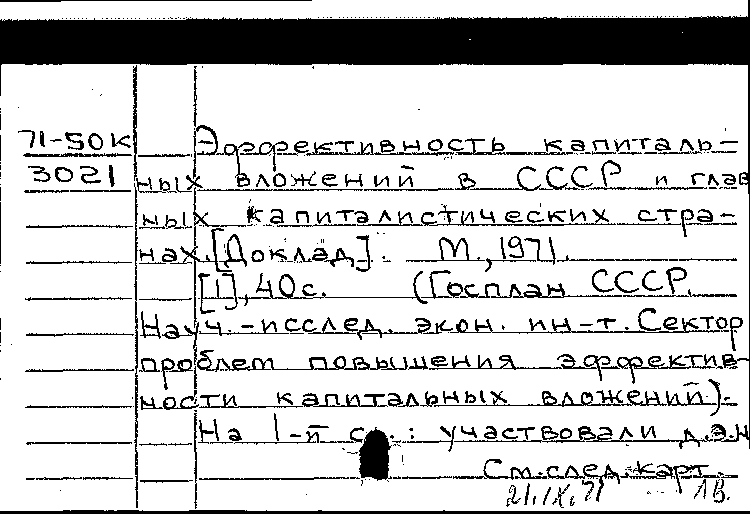 71-50К Эффективность капиталь-
3021 ных вложений в СССР и глав
ных капиталистических стра-
нах. [Доклад]. М., 1971.
[1], 40 с. (Госплан СССР.
Науч.-исслед. экон. ин-т. Сектор
проблем повышения эффектив-
ности капитальных вложений).
На 1-й с.: участвовали д.э.н
См. след. карт.
21.IX.71 ЛВ.